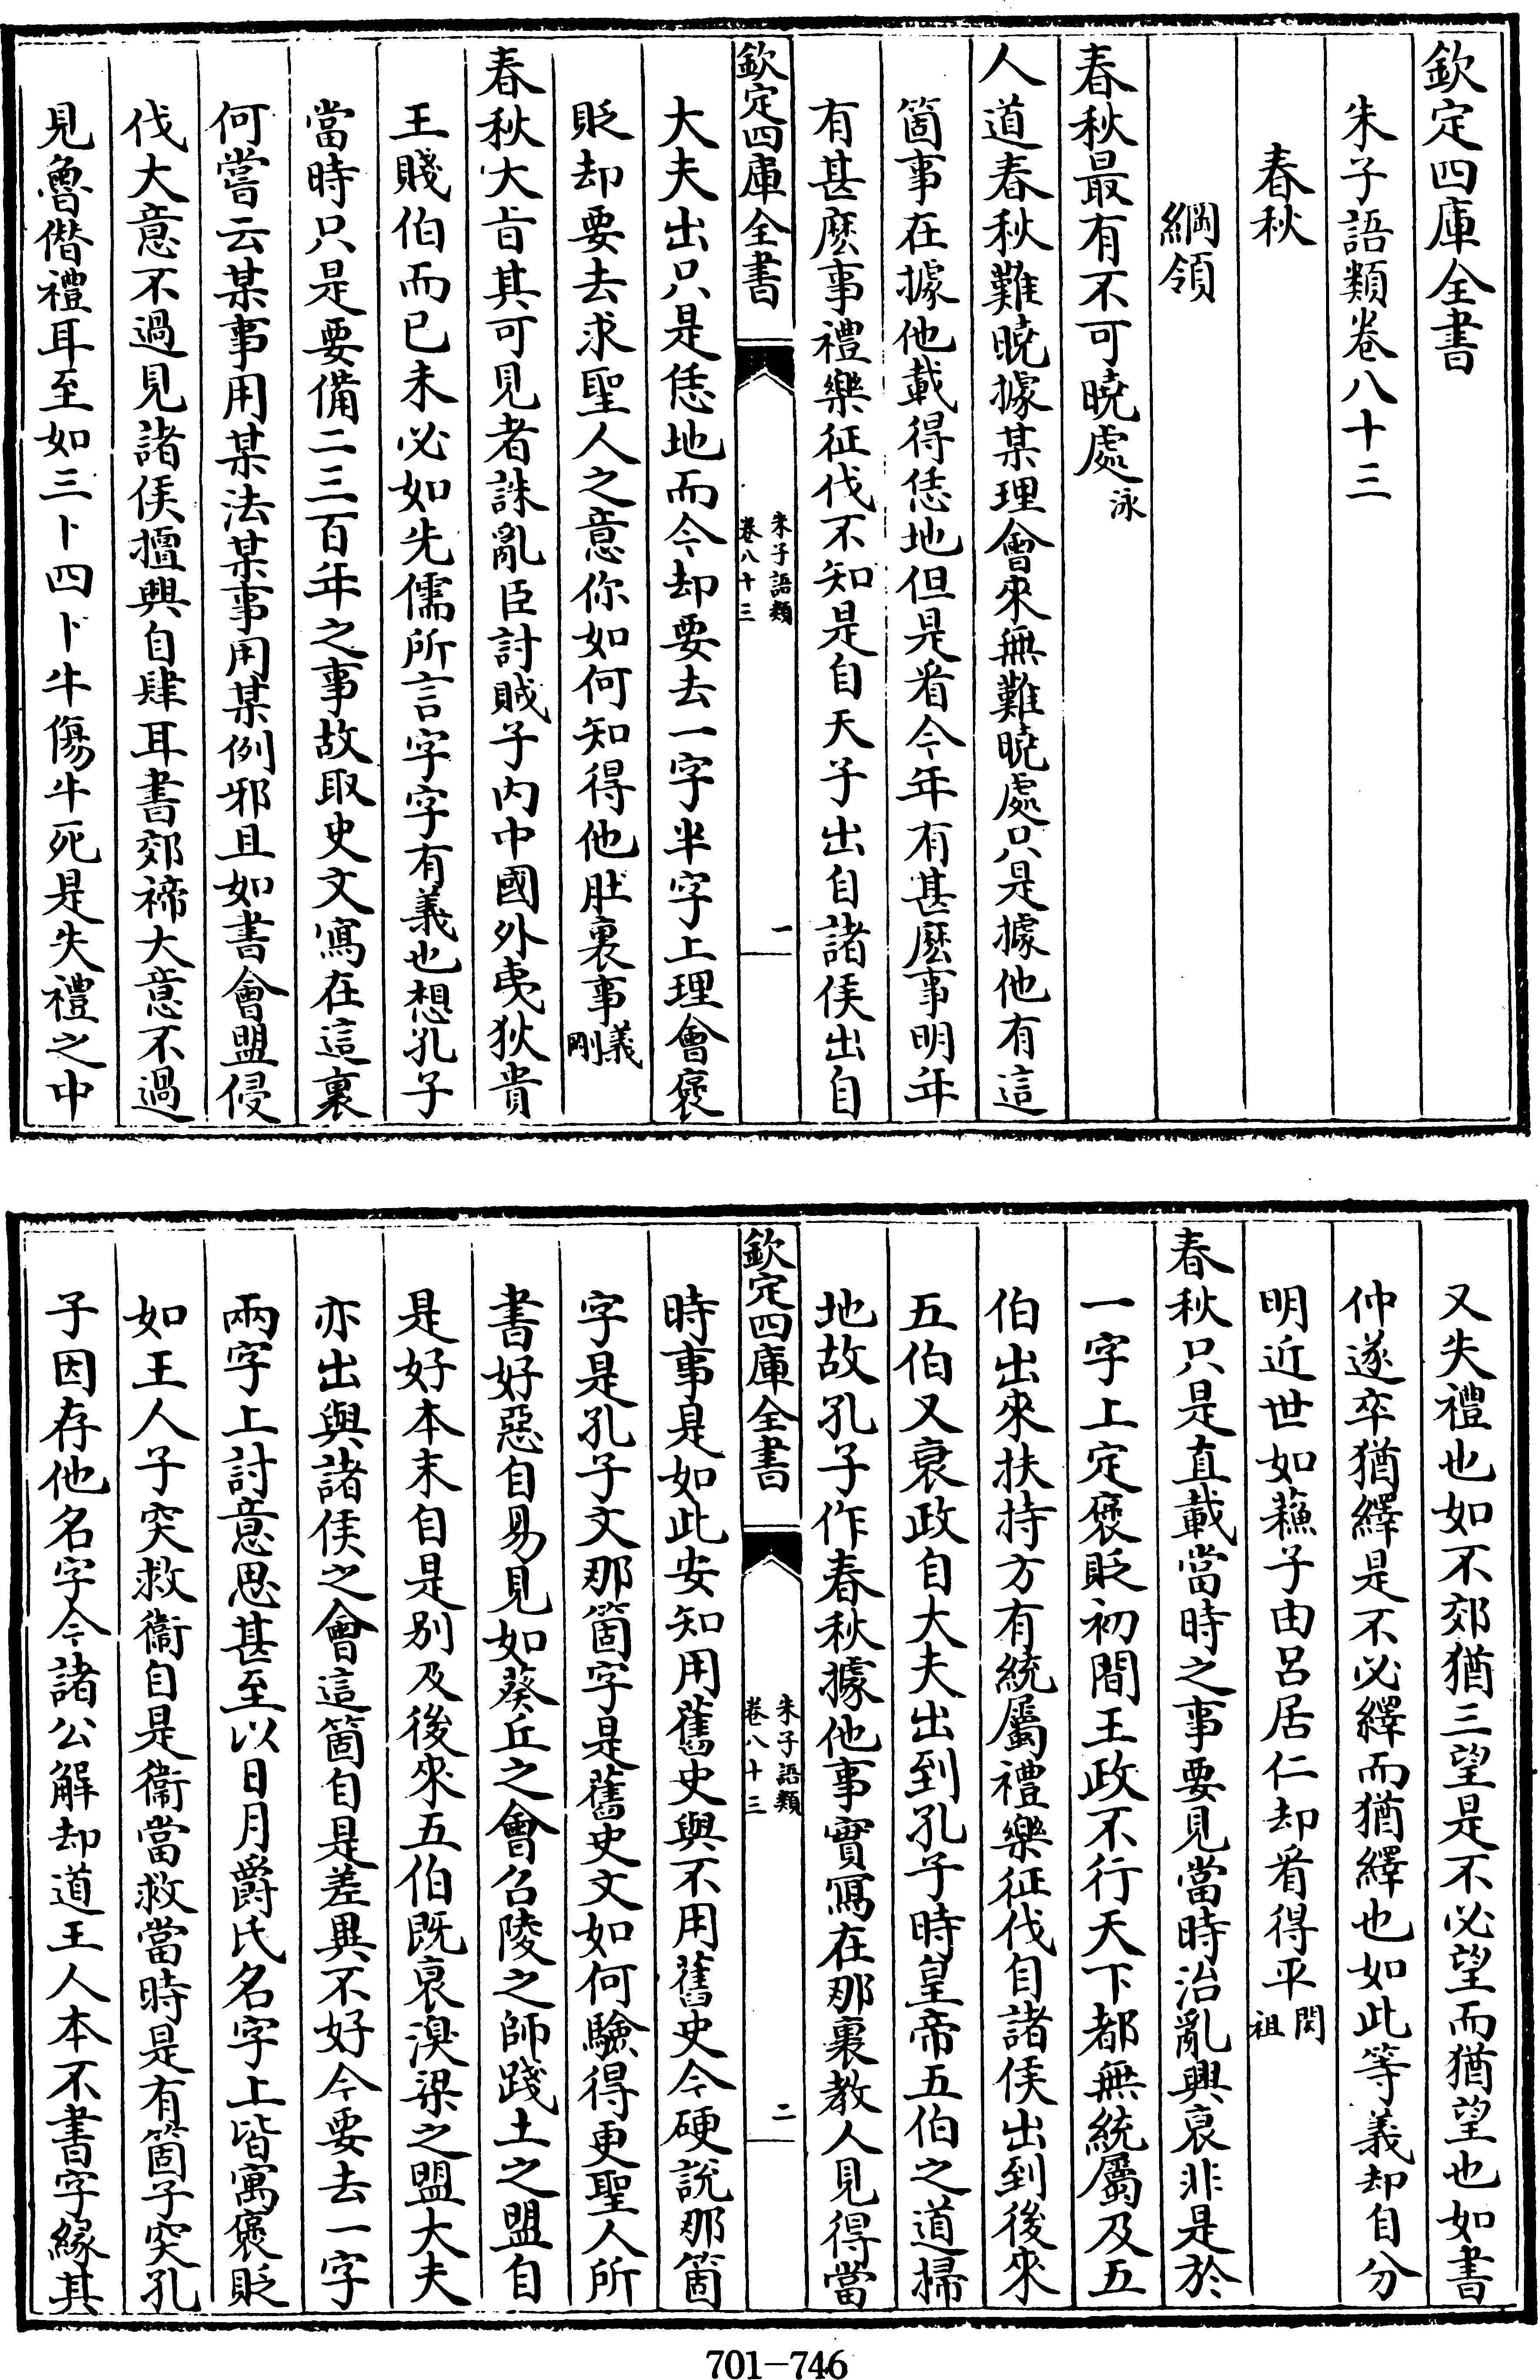 欽定四庫全書
朱子語類卷八十三
春秋
綱領
春秋最有不可曉處泳
人道春秋難曉據某理會來無難曉處只是據他有這
箇事在據他載得恁地但是看今年有甚麽事明年
有甚麽事禮樂征伐不知是自天子出自諸侯出自
欽定四庫全書
朱子語類
卷八十三
一
大夫出只是恁地而今却要去一字半字上理會褒
貶却要去求聖人之意你如何知得他肚裏事義
剛
春秋大旨其可見者誅亂臣討賊子內中國外夷狄貴
王賤伯而已未必如先儒所言字字有義也想孔子
當時只是要備二三百年之事故取史文寫在這裏
何嘗云某事用某法某事用某例邪且如書會盟侵
伐大意不過見諸侯擅興自肆耳書郊禘大意不過
見魯僭禮耳至如三卜四卜牛傷牛死是失禮之中
又失禮也如不郊猶三望是不必望而猶望也如書
仲遂卒猶繹是不必繹而猶繹也如此等義却自分
明近世如蘓子由呂居仁却看得平閎
祖
春秋只是直載當時之事要見當時治亂興衰非是於
一字上定褒貶初間王政不行天下都無統屬及五
伯出來扶持方有統屬禮樂征伐自諸侯出到後來
五伯又衰政自大夫出到孔子時皇帝五伯之道掃
地故孔子作春秋據他事實寫在那裏教人見得當
欽定四庫全書
朱子語類
卷八十三
二
時事是如此安知用舊史與不用舊史今硬說那箇
字是孔子文那箇字是舊史文如何驗得更聖人所
書好惡自易見如葵丘之會召陵之師踐土之盟自
是好本末自是别及後來五伯既衰溴梁之盟大夫
亦出與諸侯之會這箇自是差異不好今要去一字
兩字上討意思甚至以日月爵氏名字上皆寓褒貶
如王人子突救衞自是衞當救當時是有箇子突孔
子因存他名字今諸公解却道王人本不書字緣其
701-746